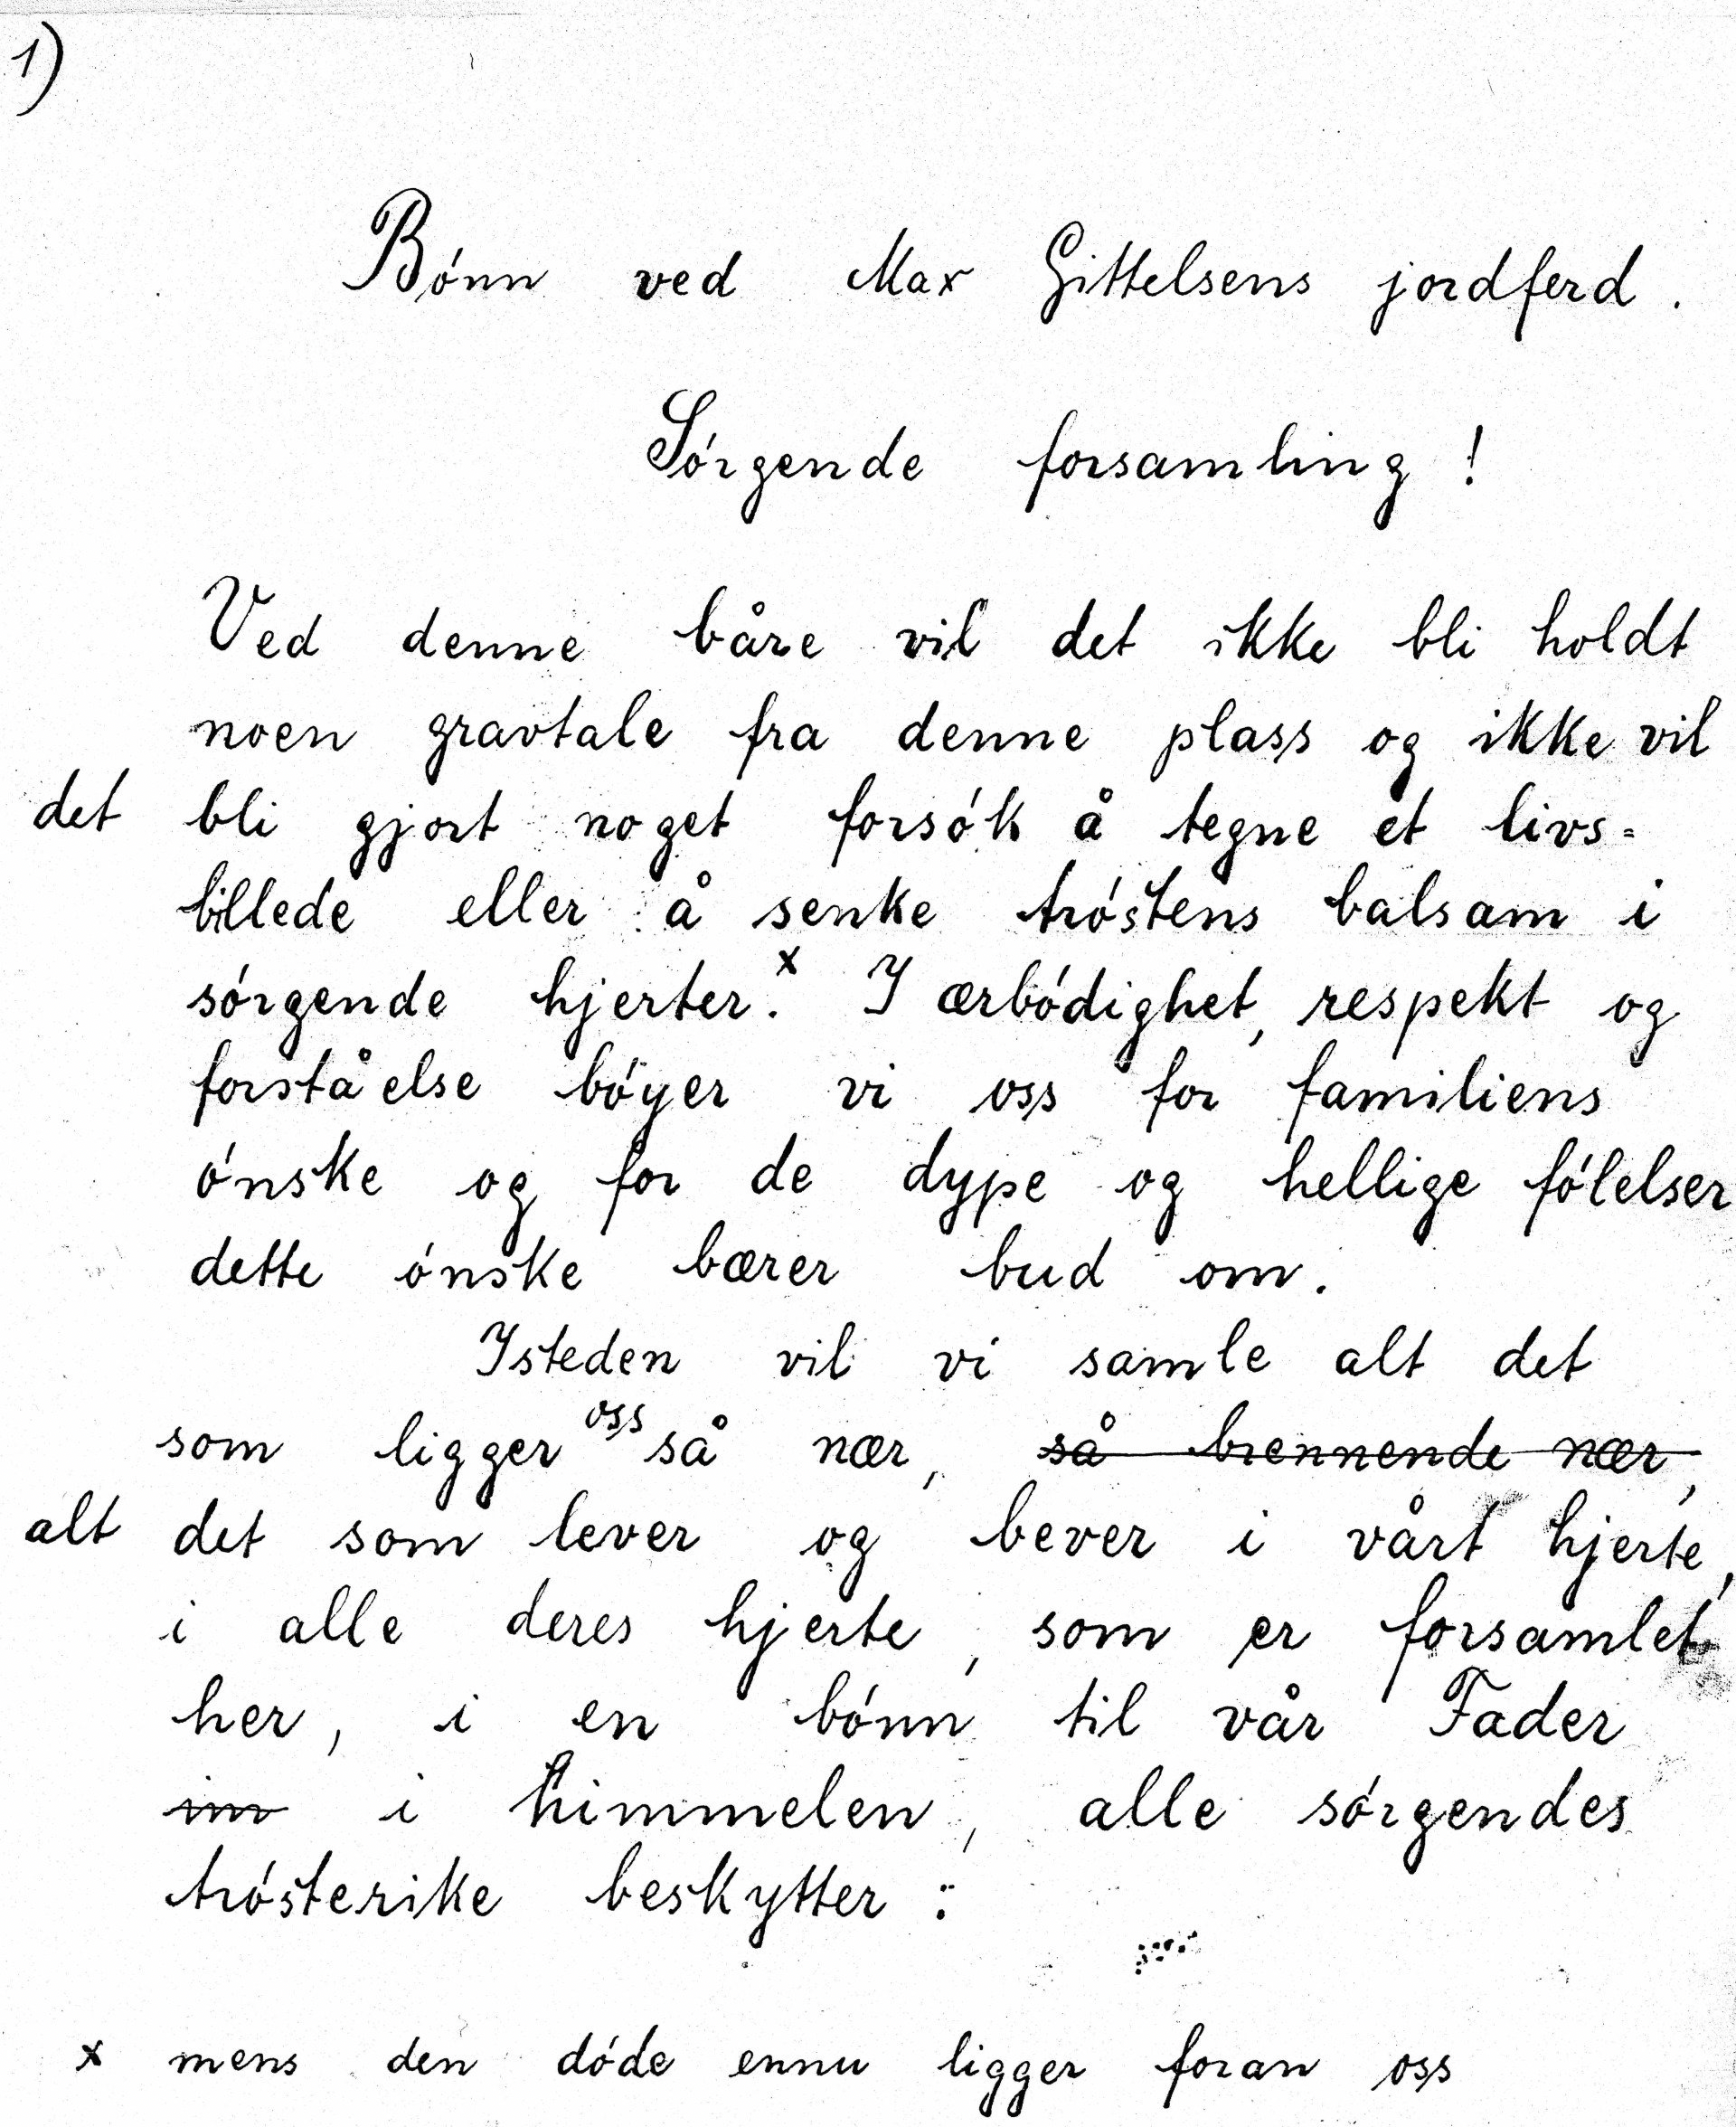 1)
Bónn ved Max Gittelsens jordferd.
Sórgende forsamling!
Ved denne båre vil det ikke bli holdt
noen gravtale fra denne plass og ikke vil
det bli gjort noget forsók å tegne et livs=
billede eller å senke tróstens balsam i
sórgende hjerter.x I ærbódighet, respekt og
forståelse bóyer vi oss for familiens
ónske og for de dype og hellige fólelser
dette ónske bærer bud om.
Isteden vil vi samle alt det
som ligger oss så nær, så brennende nær,
alt det som lever og bever i vårt hjerte,
i alle deres hjerte, som er forsamlet
her, i en bónn til vår Fader
im i himmelen, alle sórgendes
trósterike beskytter:
x mens den dóde ennu ligger foran oss